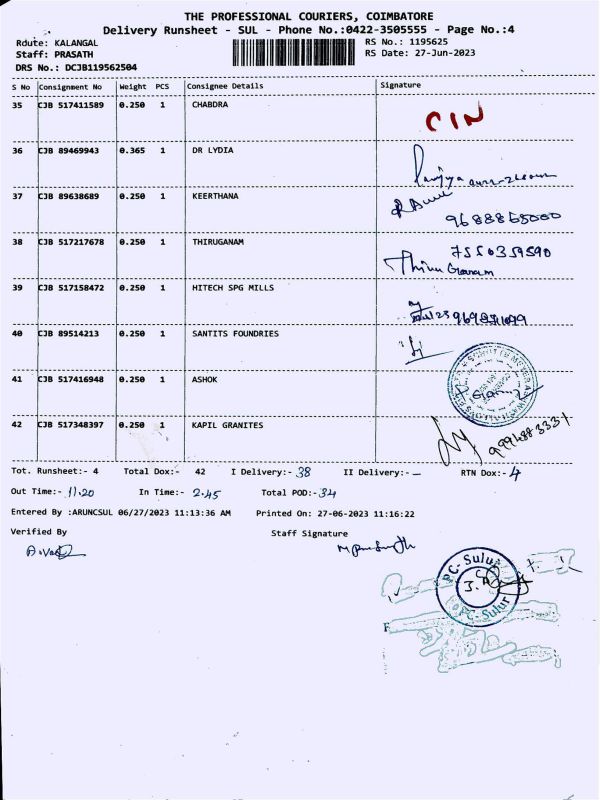 THE PROFESSIONAL COURIERS, COIMBATORE
Delivery Runsheet - SUL - Phone No.:0422-3505555 - Page No.:4
Route: KALANGAL RS No.: 1195625
Staff: PRASATH RS Date: 27-Jun-2023
DRS No.: DCJB119562504
S No Consignment No Weight PCS Consignee Details Signature
35 CJB 517411589 0.250 1 CHABDRA CIN
36 CJB 89469943 0.365 1 DR LYDIA
37 CJB 89638689 0.250 1 KEERTHANA
9688865000
38 CJB 517217678 0.250 1 THIRUGANAM 7550359590
Thiru Gnanam
39 CJB 517158472 0.250 1 HITECH SPG MILLS
40 CJB 89514213 0.250 1 SANTITS FOUNDRIES
41 CJB 517416948 0.250 1 ASHOK
42 CJB 517348397 0.250 1 KAPIL GRANITES 9994883331
Tot. Runsheet:- 4 Total Dox:- 42 I Delivery:- 38 II Delivery:- - RTN Dox:- 4
Out Time:- 11.20 In Time:- 2.45 Total POD:- 34
Entered By :ARUNCSUL 06/27/2023 11:13:36 AM Printed On: 27-06-2023 11:16:22
Verified By Staff Signature
PC-Sulur
PC-Sulur